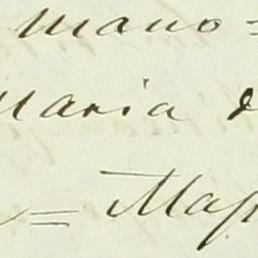 mano=
Maria d
= Map